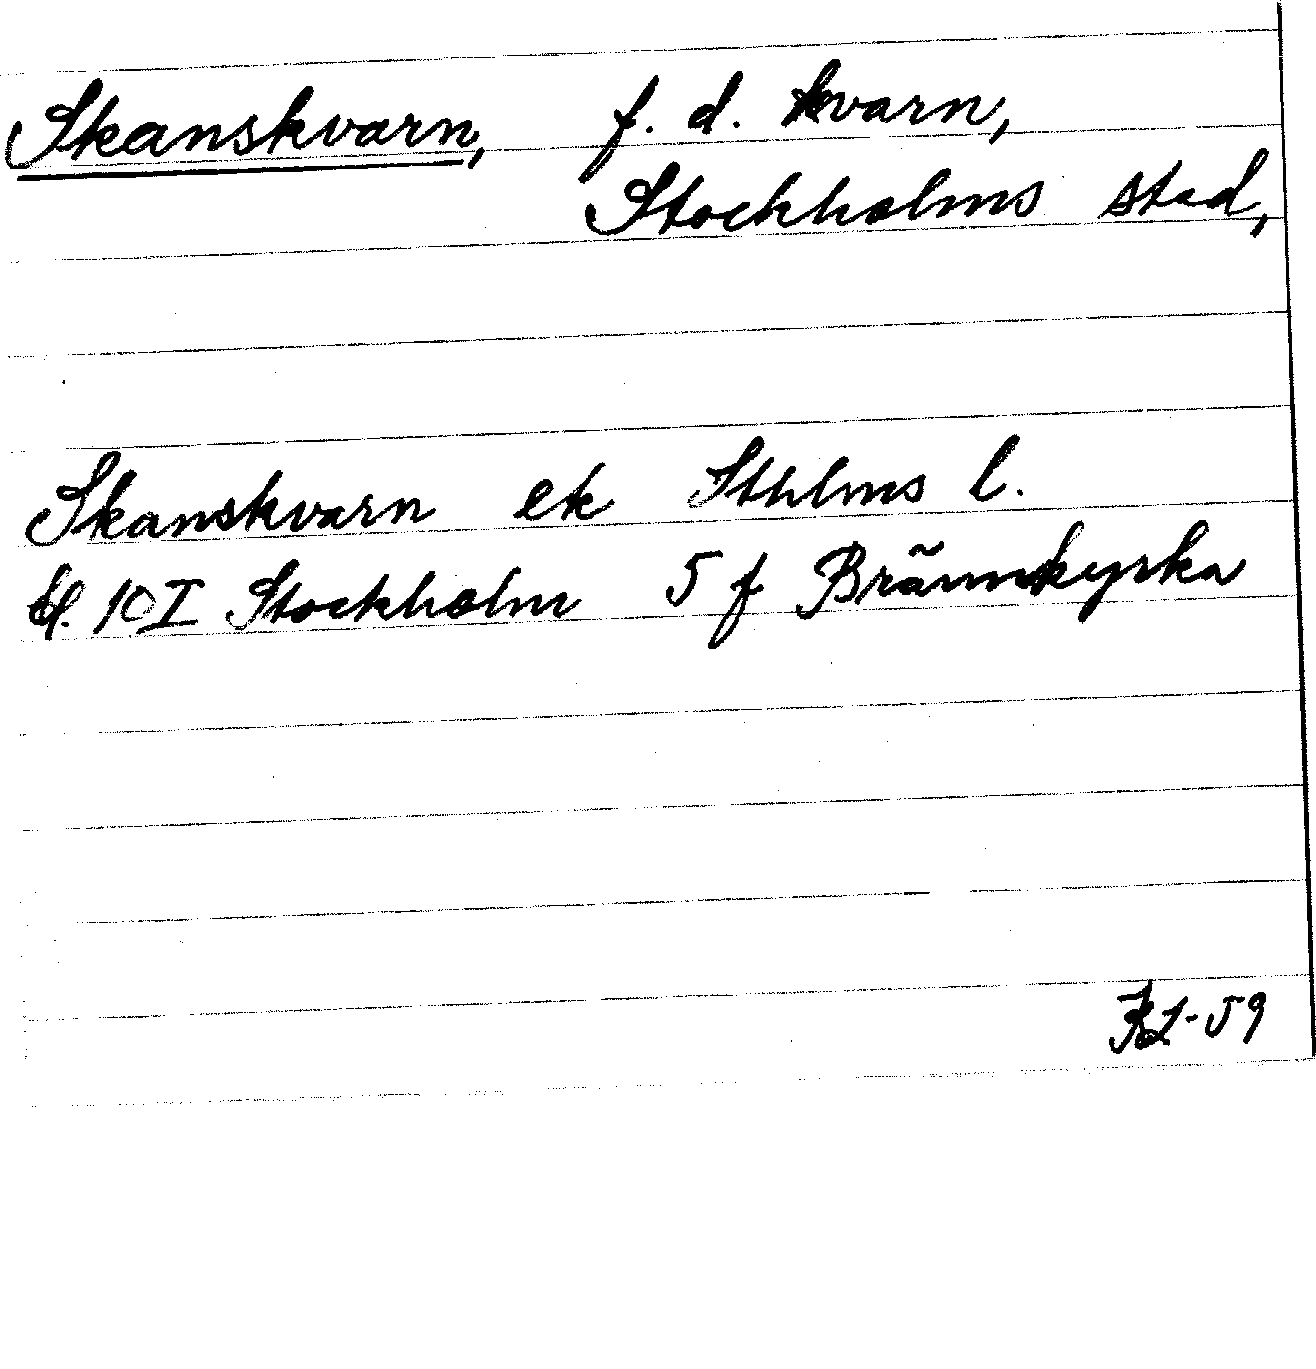 Skanskvarn, f. d. kvarn,
Stockholms stad,
Skanskvarn ek Sthlms l.
bl. 10I Stockholm 5 f Brännkyrka
KL-59